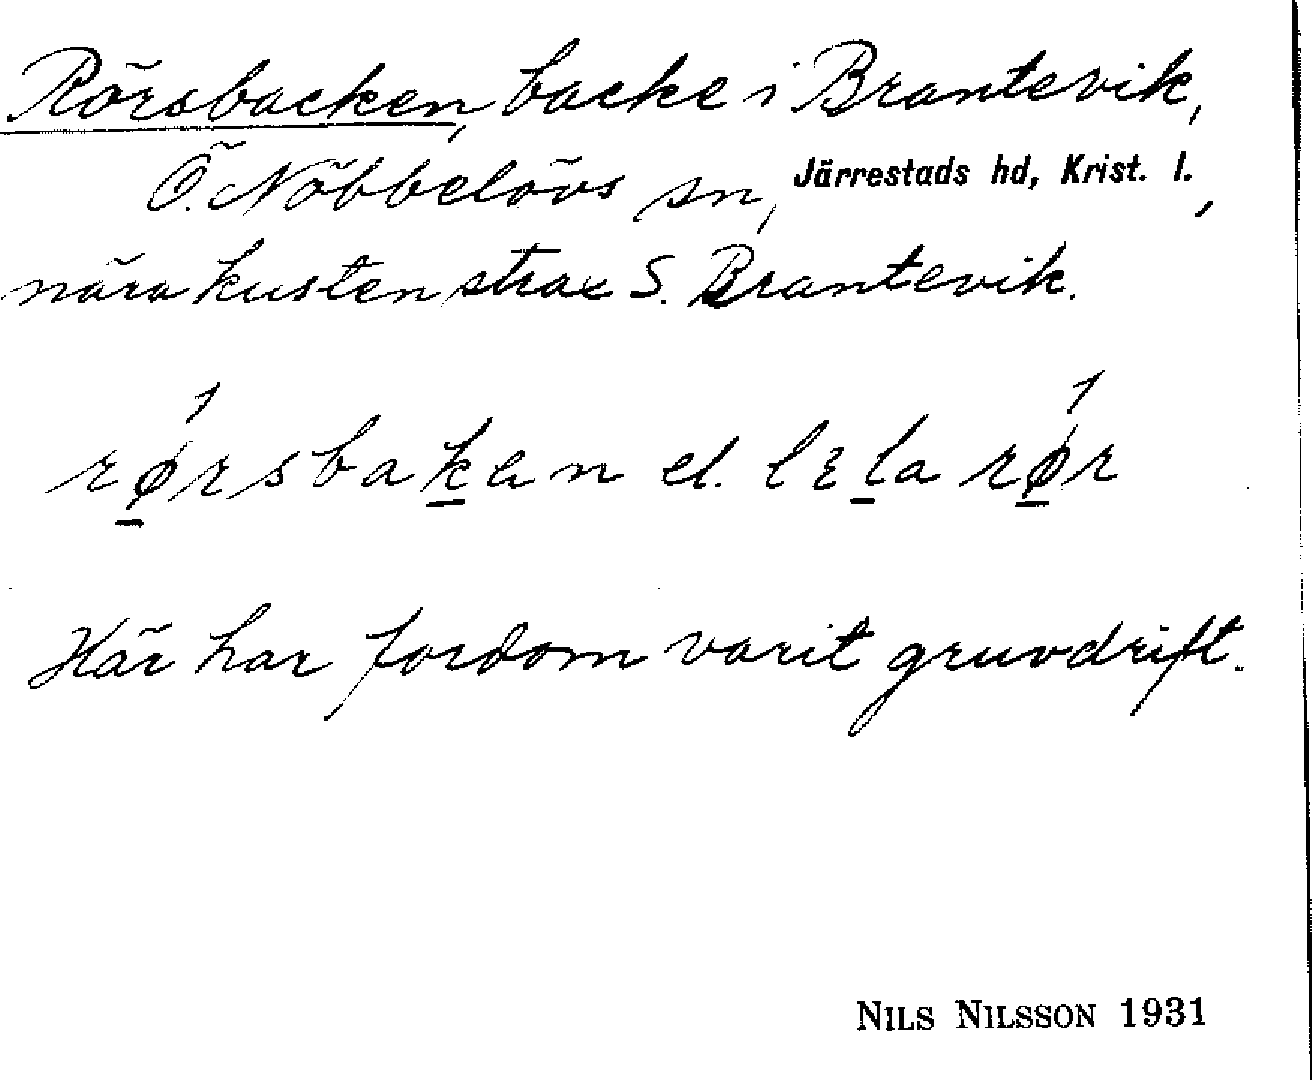 Rörsbacken, backe i Brantevik,
Ö. Nöbbelövs sn, Järrestads hd, Krist. l.,
nära kusten strax S. Brantevik.
rǿ̱rsbaḵen el. lɛḻa rǿ̱r
Här har fordom varit gruvdrift.
NILS NILSSON 1931